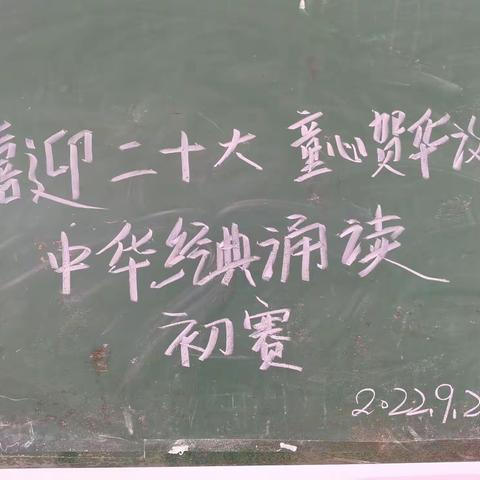 喜迎二十大 童心贺华
中华经典诵读
初赛
2022.9.2